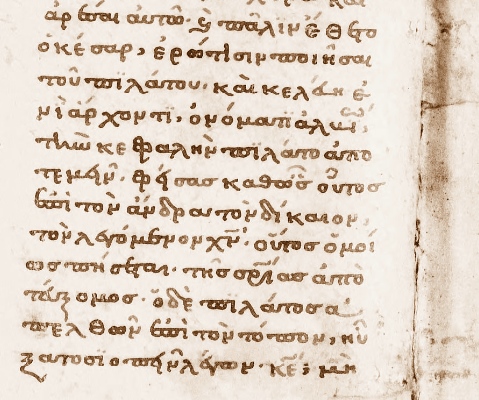 ἆρθῆναι αὐτῶ· ϛ πάλιν ἔθετο
ὁ κέσαρ, ἐρώτισιν ποιῆσαι
τοῦ πϊλάτου· καὶ κελεύη ἑ
νὶ ἄρχοντι, ὀνόματι ἀλ
τὴν κεφαλὴν πϊλάτο ἀπο
τεμεῖν· φήσας καθὼς οὗτος
ἐπὶ τὸν ἄνδρα τὸν δίκαιον,
τὸν λεγόμενον χν· οὗτος ὁμοί
ως πεσῆται· τῆς σρίας ἀπὸ
ὁ δὲ πιλάτος ἀ
πελθὼν ἐπὶ τὸν τόπον, ηὔ
ξατο σϊοπὴν λέγων· κε, μὴ